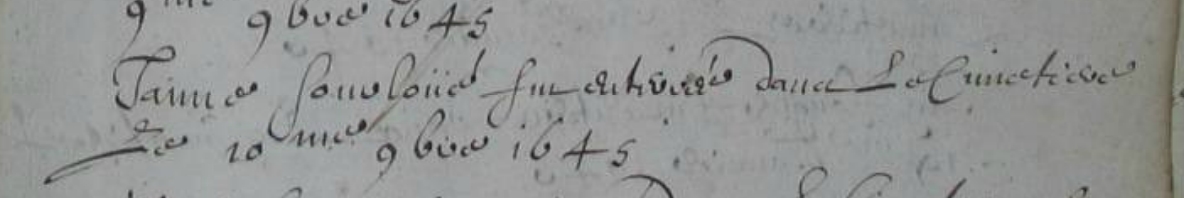 9me 9bre 1645
Janne fut enterrée dans Le Cimetiere
Le 10me 9bre 1645